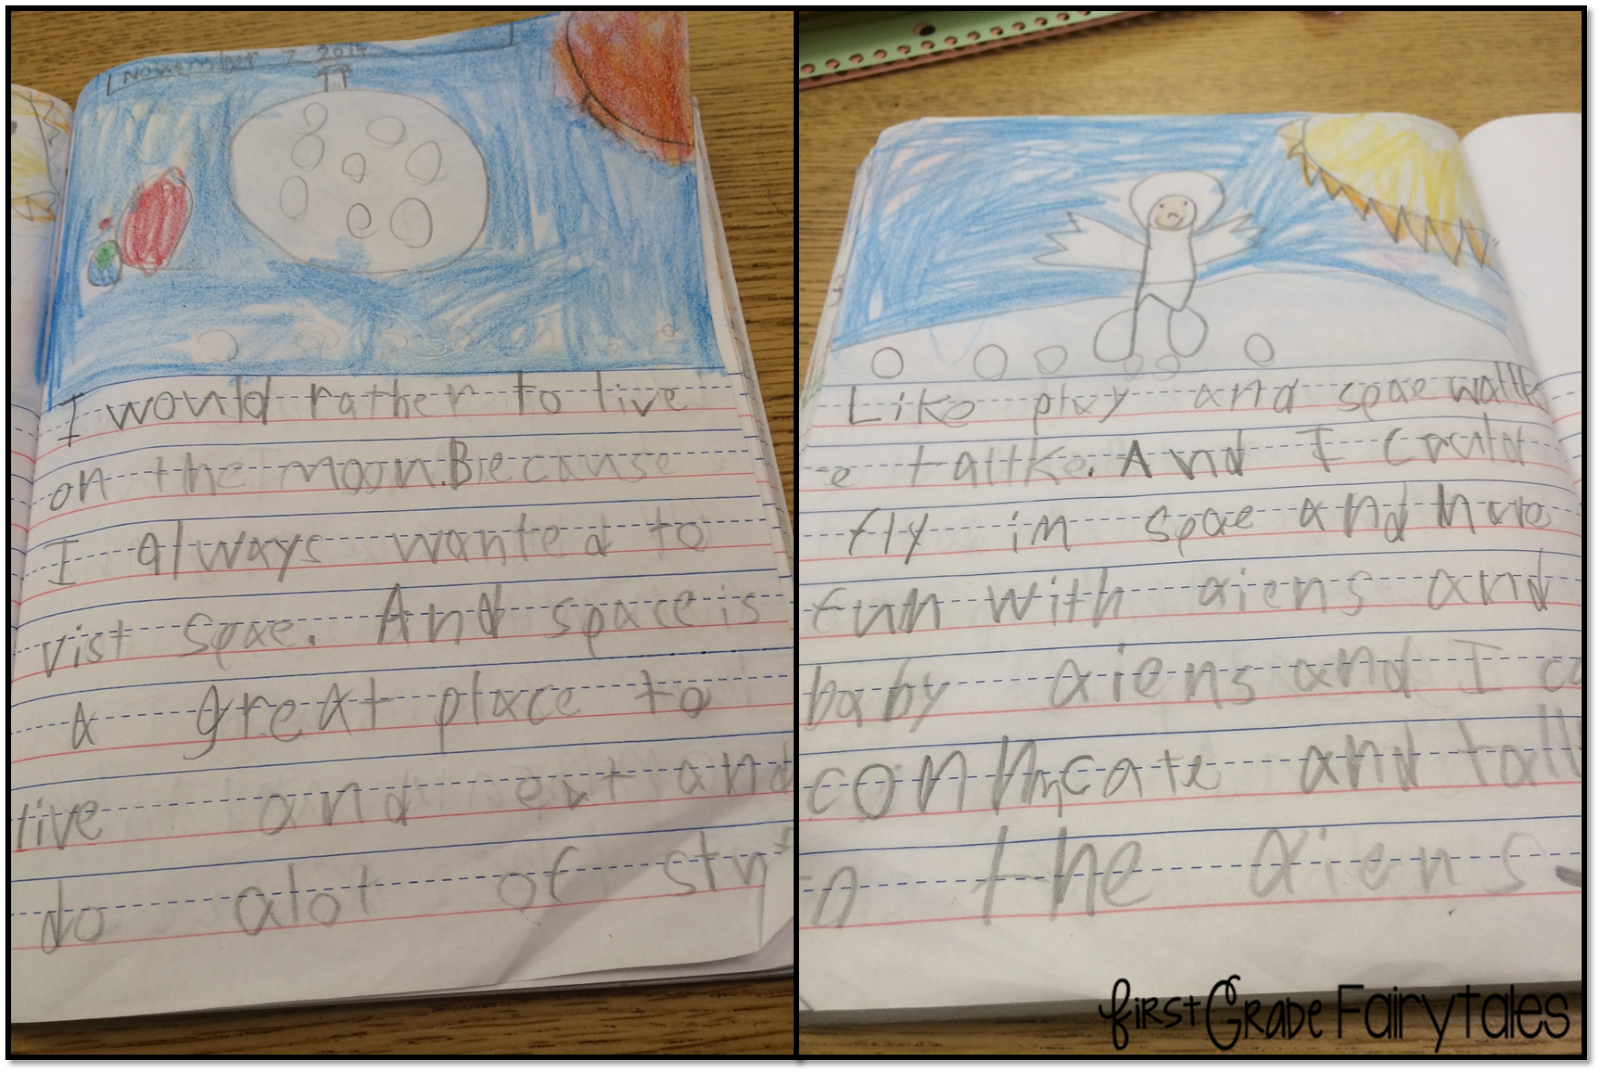 November 7 2014
I would rather to live
on the moon. Because
I always wanted to
vist spae. And space is
a great place to
live and eat and
do alot of stuf
Like play and spae walke
e talke. And I could
fly in spae and have
fun with aiens and
baby aiens and I co
conmcate and talk
o the aiens.
First Grade Fairytales